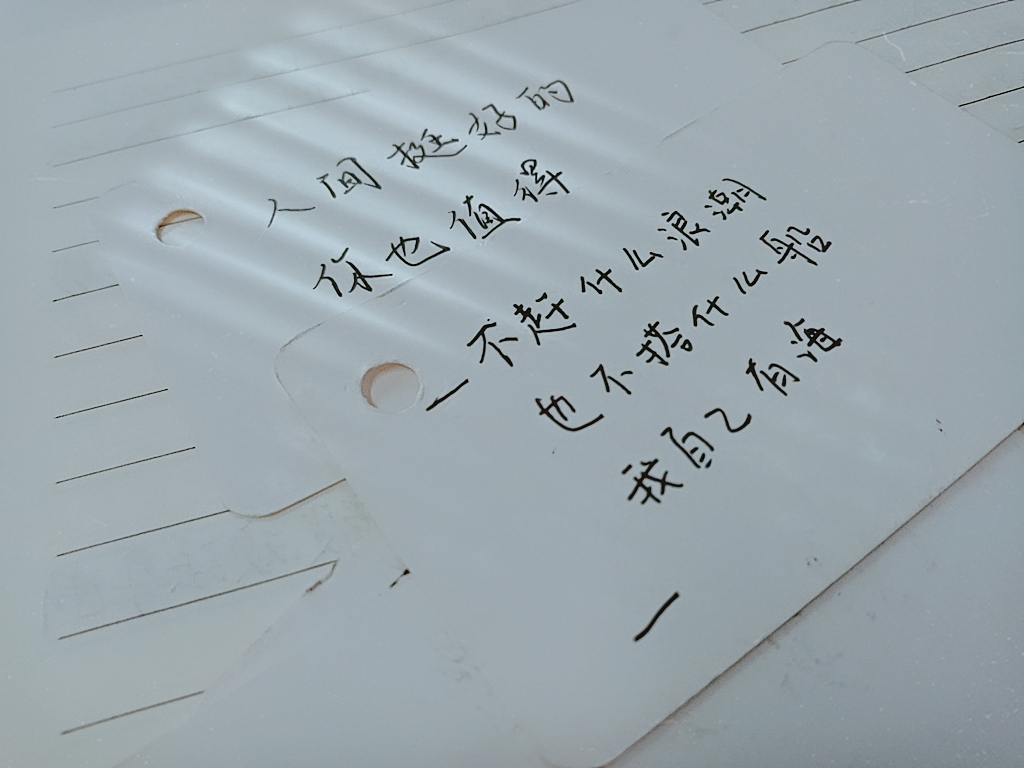 人间挺好的
你也值得
一不赶什么浪潮
也不搭什么船
我自己有海
一